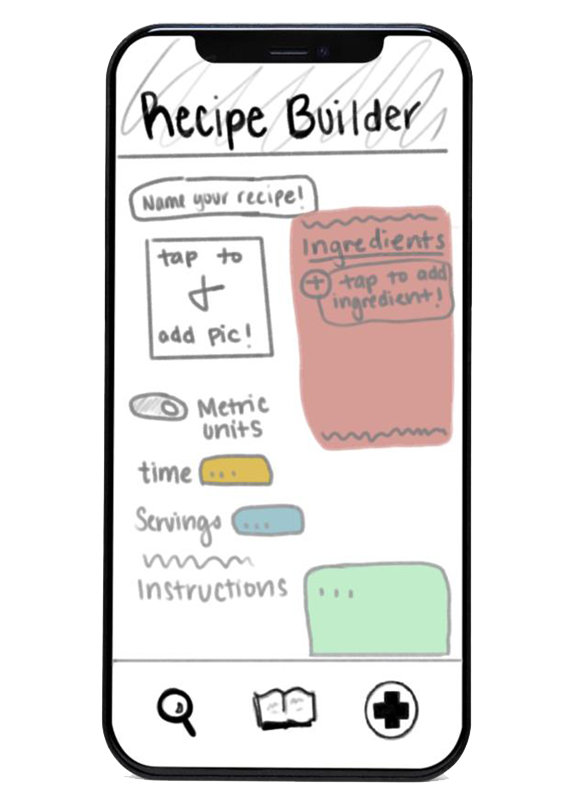 Recipe Builder
Name your recipe!
tap to
+
add pic!
Ingredients
+ tap to add
ingredient!
Metric
units
time ...
Servings ...
Instructions ...